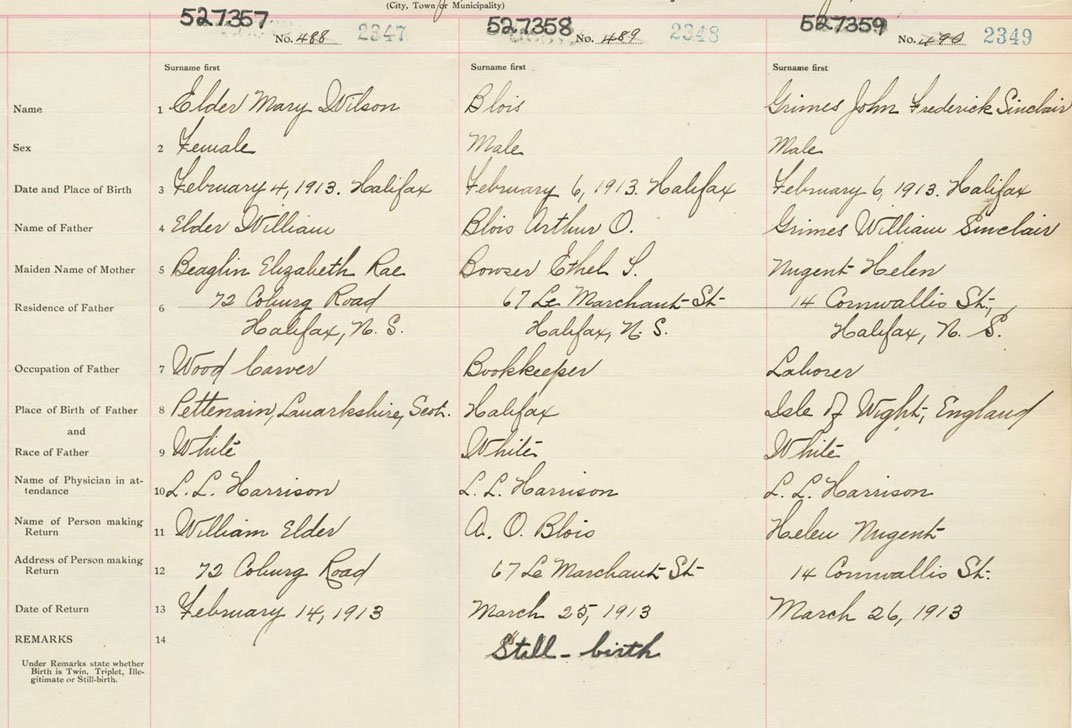 (City, Town or Municipality)
527357 527358 527359
No. 488 2347 No. 489 2348 No. 490 2349
Surname first Surname first Surname first
Name 1 Elder Mary Wilson Blois Grimes John Frederick Sinclair
Sex 2 Female Male Male
Date and Place of Birth 3 February 4, 1913. Halifax February 6, 1913. Halifax February 6, 1913. Halifax
Name of Father 4 Elder William Blois Arthur O. Grimes William Sinclair
Maiden Name of Mother 5 Beaglin Elizabeth Rae Bowser Ethel S. Nugent Helen
Residence of Father 6 72 Coburg Road 67 Le Marchant St. 14 Cornwallis St.,
Halifax, N. S. Halifax, N. S. Halifax, N. S.
Occupation of Father 7 Wood Carver Bookkeeper Laborer
Place of Birth of Father 8 Pettenain, Lanarkshire, Scot. Halifax Isle of Wight, England
and
Race of Father 9 White White White
Name of Physician in at-
tendance 10 L. L. Harrison L. L. Harrison L. L. Harrison
Name of Person making
Return 11 William Elder A. O. Blois Helen Nugent
Address of Person making
Return 12 72 Coburg Road 67 Le Marchant St. 14 Cornwallis St.
Date of Return 13 February 14, 1913 March 25, 1913 March 26, 1913
REMARKS 14 Still-birth
Under Remarks state whether
Birth is Twin, Triplet, Ille-
gitimate or Still-birth.